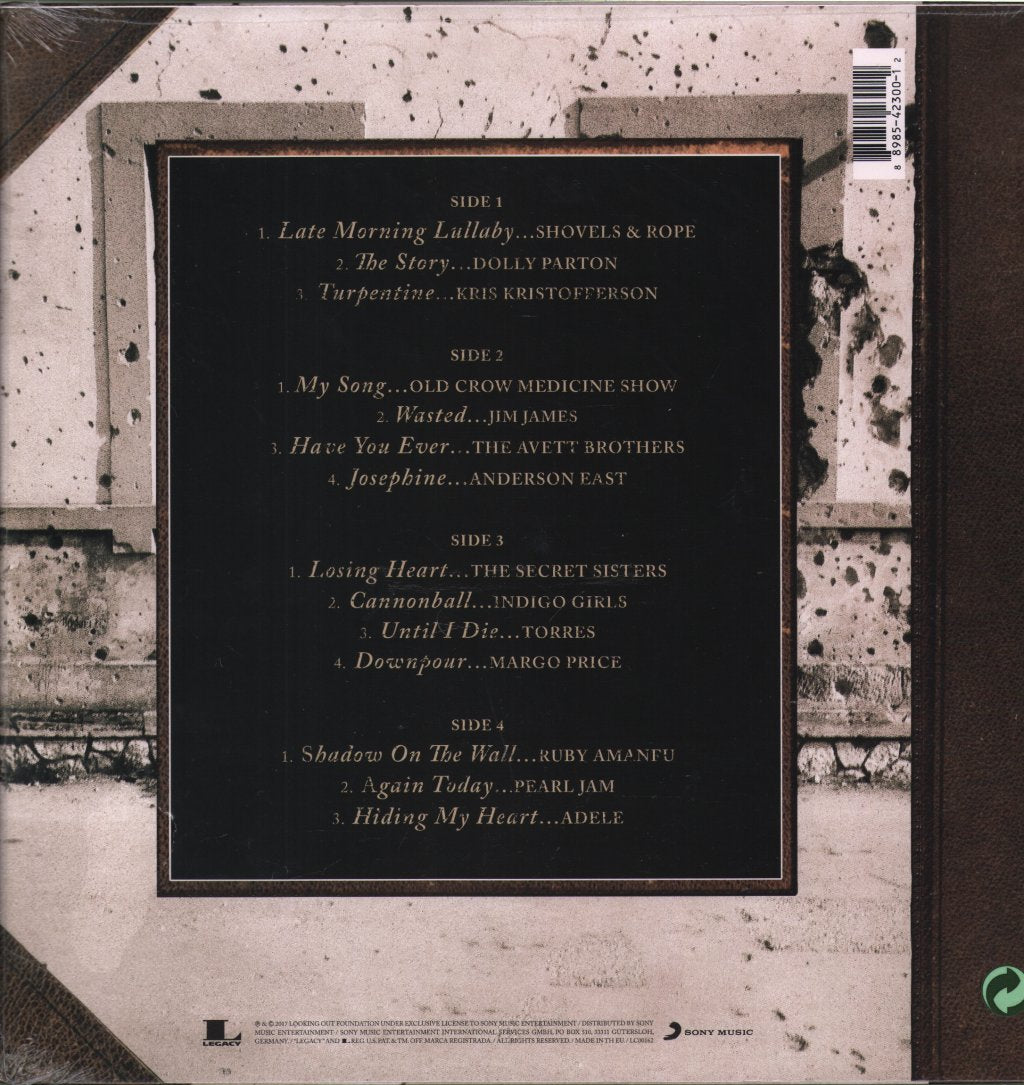 8 89854-42300-1 2
SIDE 1
1. Late Morning Lullaby...SHOVELS & ROPE
2. The Story...DOLLY PARTON
3. Turpentine...KRIS KRISTOFFERSON
SIDE 2
1. My Song...OLD CROW MEDICINE SHOW
2. Wasted...JIM JAMES
3. Have You Ever...THE AVETT BROTHERS
4. Josephine...ANDERSON EAST
SIDE 3
1. Losing Heart...THE SECRET SISTERS
2. Cannonball...INDIGO GIRLS
3. Until I Die...TORRES
4. Downpour...MARGO PRICE
SIDE 4
1. Shadow On The Wall...RUBY AMANFU
2. Again Today...PEARL JAM
3. Hiding My Heart...ADELE
L
LEGACY
℗ & © 2017 LOOKING OUT FOUNDATION UNDER EXCLUSIVE LICENSE TO SONY MUSIC ENTERTAINMENT / DISTRIBUTED BY SONY
MUSIC ENTERTAINMENT / SONY MUSIC ENTERTAINMENT INTERNATIONAL SERVICES GMBH, PO BOX 510, 33311 GÜTERSLOH,
GERMANY. / "LEGACY" AND L REG. U.S. PAT. & TM. OFF. MARCA REGISTRADA. / ALL RIGHTS RESERVED. / MADE IN TH EU / LC00162
SONY MUSIC